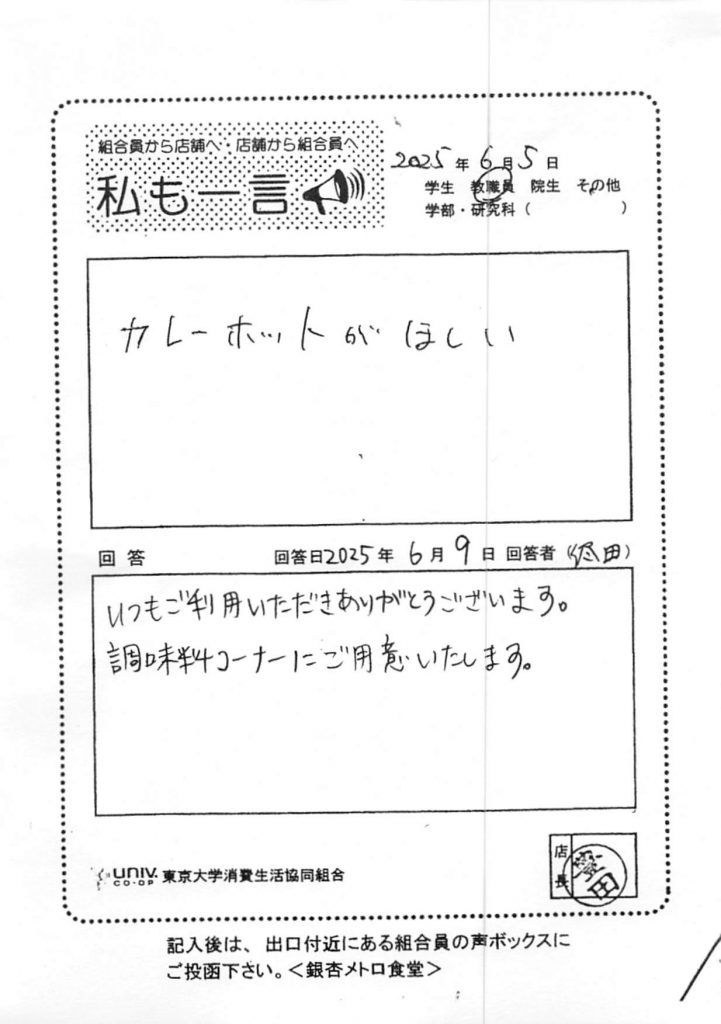 組合員から店舗へ・店舗から組合員へ
私も一言
2025年6月5日
学生 教職員 院生 その他
学部・研究科（ ）
カレーホットがほしい
回答 回答日2025年6月9日 回答者（ 田）
いつもご利用いただきありがとうございます。
調味料コーナーにご用意いたします。
店長
田
UNIV.
CO-OP
東京大学消費生活協同組合
記入後は、出口付近にある組合員の声ボックスに
ご投函下さい。＜銀杏メトロ食堂＞